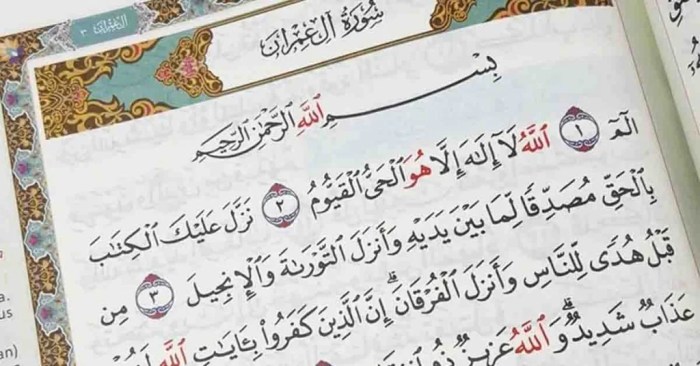 سُورَةُ آلِ عِمْرَانَ
بِسْمِ ٱللَّهِ ٱلرَّحْمَٰنِ ٱلرَّحِيمِ
الٓمٓ ١ ٱللَّهُ لَآ إِلَٰهَ إِلَّا هُوَ ٱلْحَىُّ ٱلْقَيُّومُ ٢ نَزَّلَ عَلَيْكَ ٱلْكِتَٰبَ
بِٱلْحَقِّ مُصَدِّقًا لِّمَا بَيْنَ يَدَيْهِ وَأَنزَلَ ٱلتَّوْرَىٰةَ وَٱلْإِنجِيلَ ٣ مِن
قَبْلُ هُدًى لِّلنَّاسِ وَأَنزَلَ ٱلْفُرْقَانَ ۗ إِنَّ ٱلَّذِينَ كَفَرُوا۟ بِـَٔايَٰتِ ٱللَّهِ لَهُمْ
عَذَابٌ شَدِيدٌ ۗ وَٱللَّهُ عَزِيزٌ ذُو